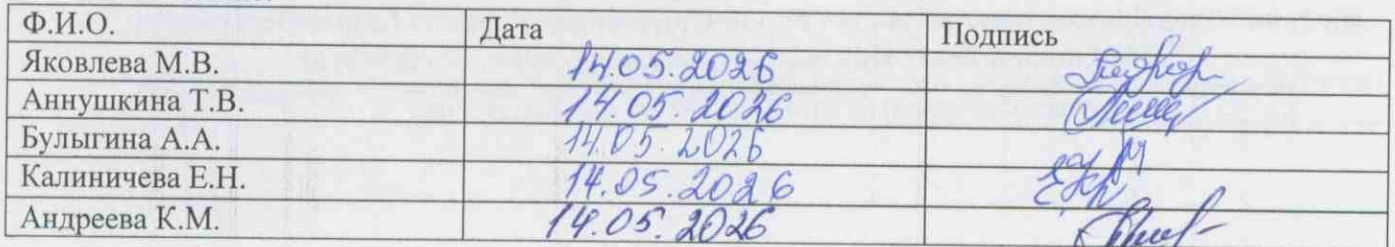 Ф.И.О. Дата Подпись
Яковлева М.В. 14.05.2026
Аннушкина Т.В. 14.05.2026
Булыгина А.А. 14.05.2026
Калиничева Е.Н. 14.05.2026
Андреева К.М. 14.05.2026